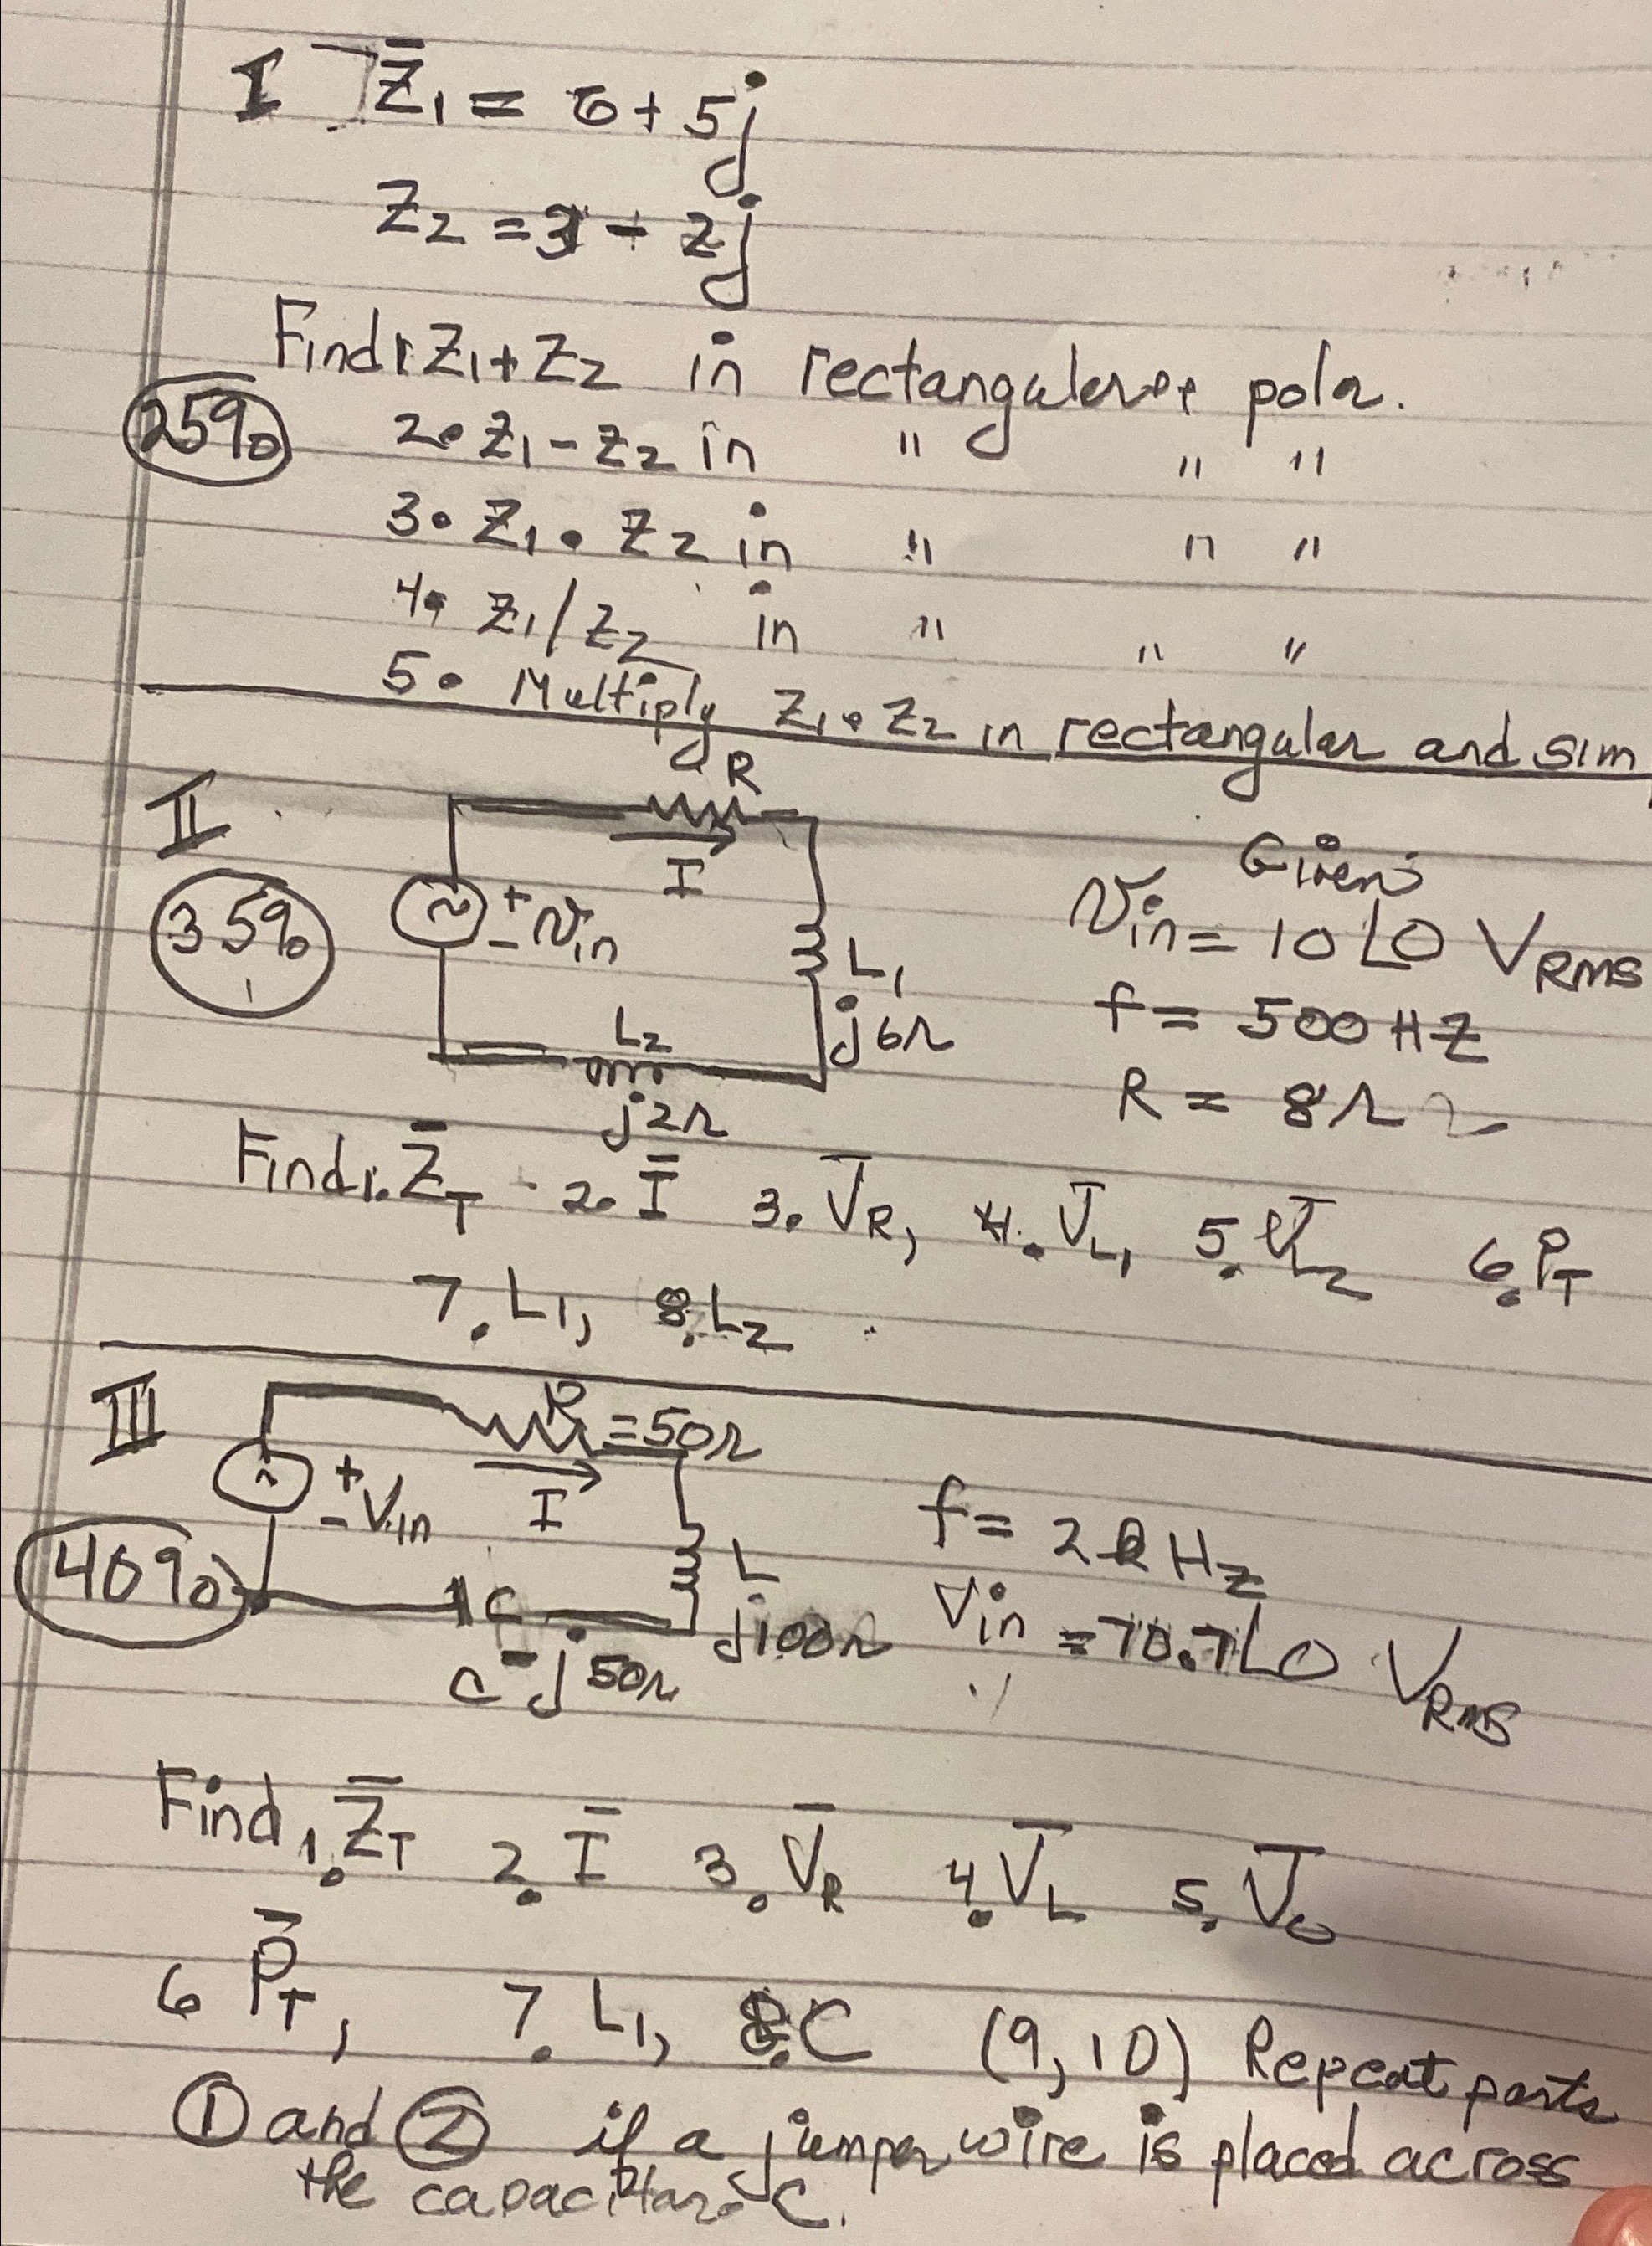 I Z̄₁ = 6 + 5j
Z₂ = 3 - 2j
Find 1. Z₁+Z₂ in rectanguler or polar.
25% 2. Z₁-Z₂ in " " "
3. Z₁•Z₂ in " " "
4. Z₁/Z₂ in " " "
5. Multiply Z₁•Z₂ in rectangular and sim
II R
I
35% + - Vin L₁ j6Ω
L₂
j2Ω
Given:
Vin = 10∠0 V RMS
f = 500 HZ
R = 8Ω
Find 1. Z̄T 2. Ī 3. V̄R, 4. V̄L₁ 5. V̄L₂ 6. PT
7. L₁, 8. L₂
III R = 50Ω
+ - Vin I
40% C L j100Ω
C -j50Ω
f = 2kHz
Vin = 70.7∠0 V RMS
Find 1. Z̄T 2. Ī 3. V̄R 4. V̄L 5. V̄C
6 P̄T, 7. L₁, 8. C (9,10) Repeat parts
① and ② if a jumper wire is placed across
the capacitor C.